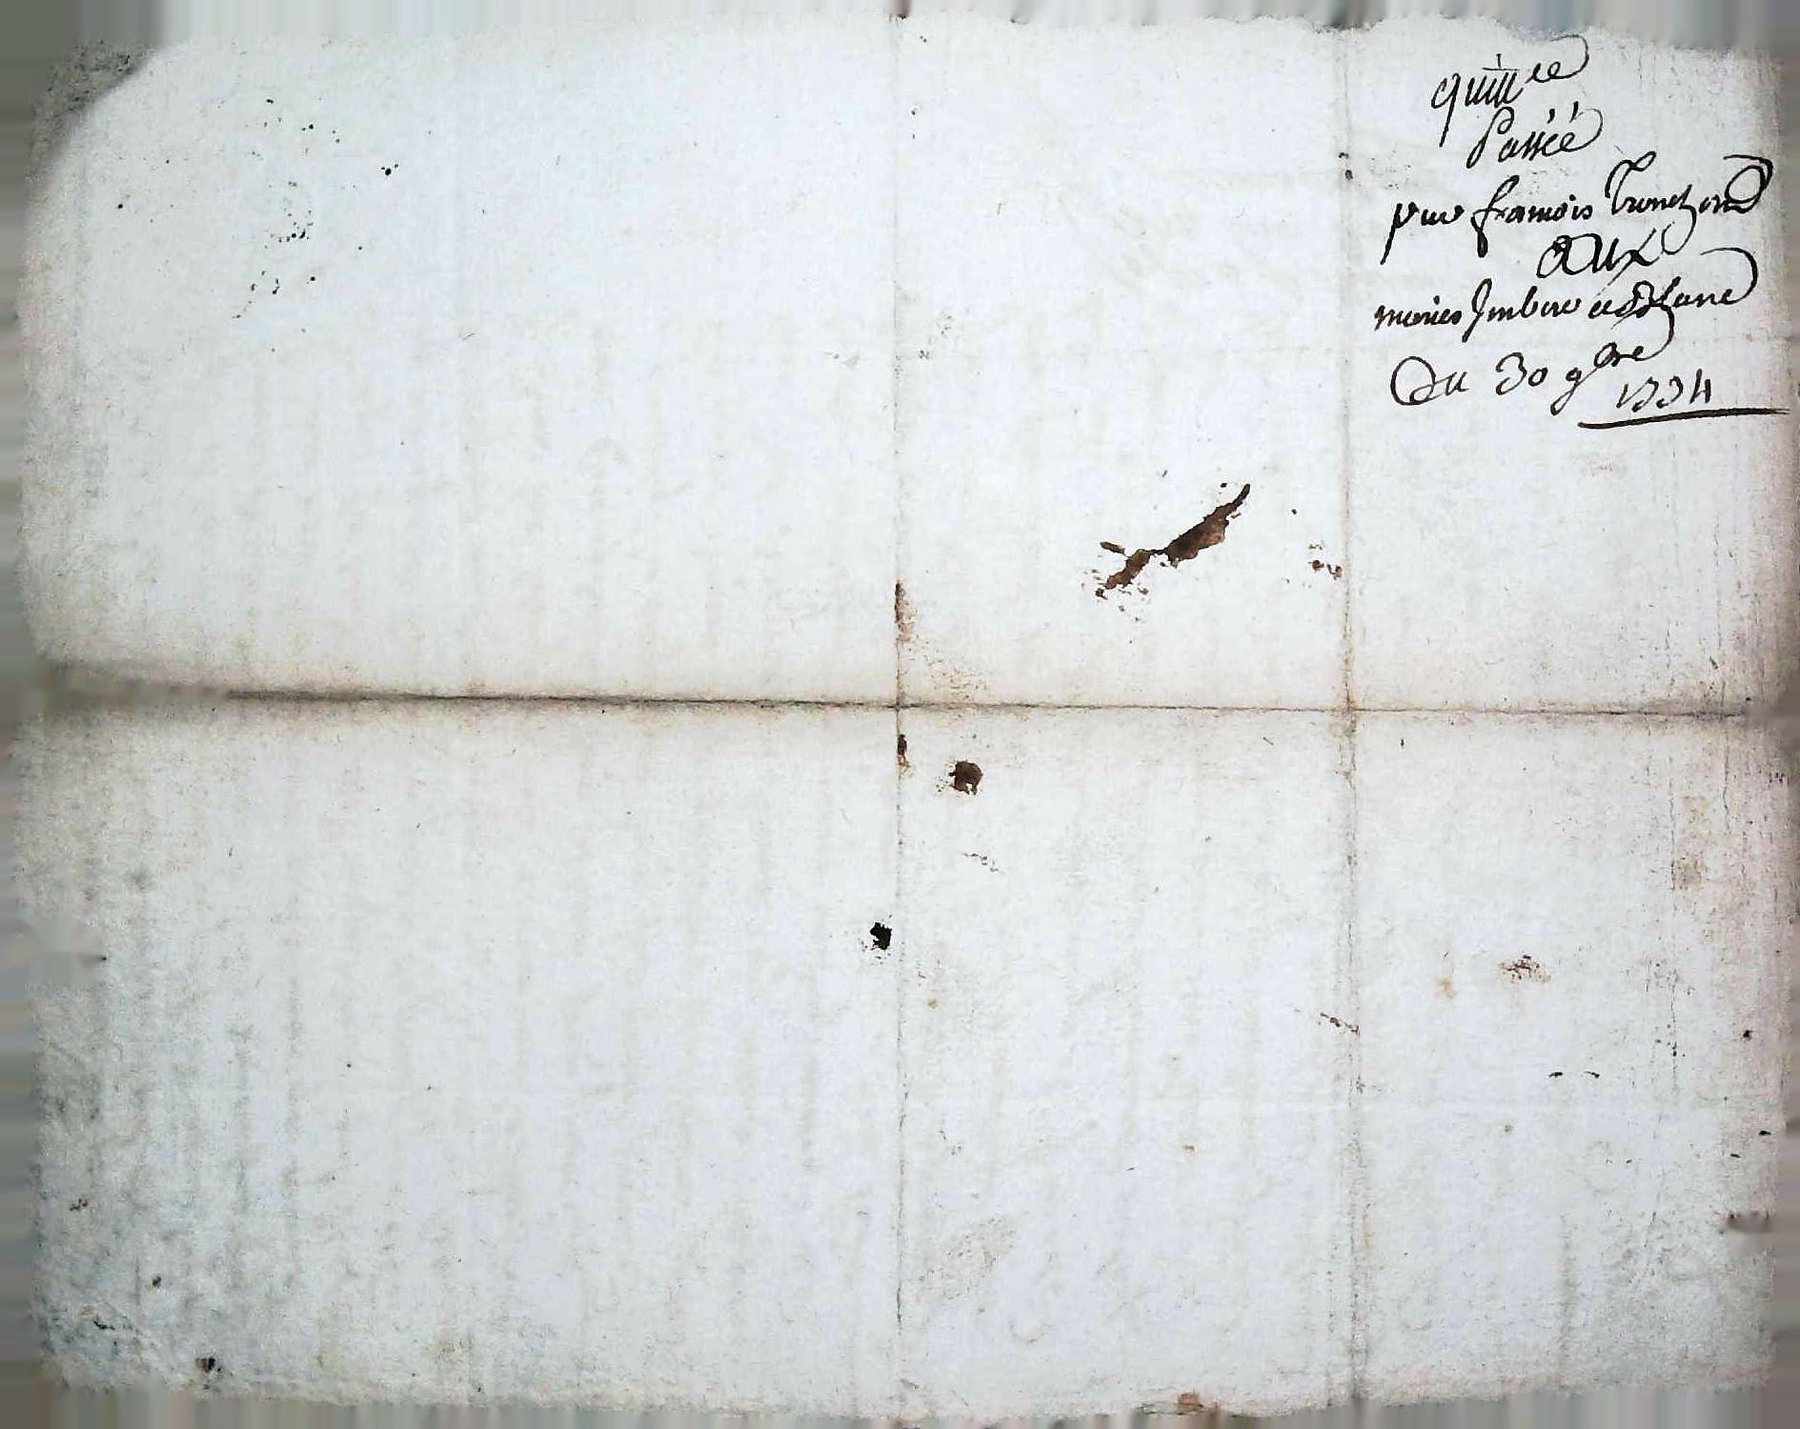 quitt.ce
Passée
par francois Tronchon
aux
maries Imbert et Blanc
Du 30 9bre
1734